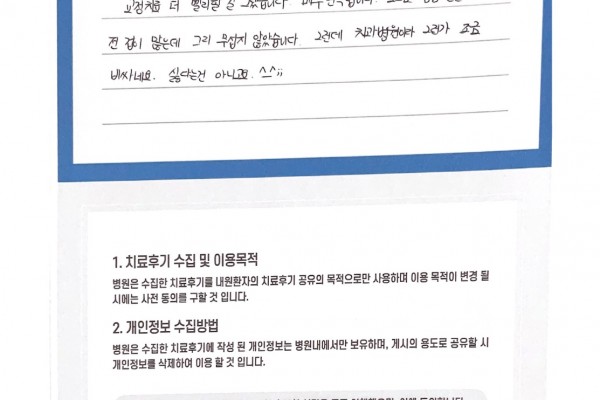 전 겁이 많은데 그리 무섭지 않았습니다. 그런데 치과병원이라 그런가 조금
비싸네요. 싫다는건 아니고요. ^^;;
1. 치료후기 수집 및 이용목적
병원은 수집한 치료후기를 내원환자의 치료후기 공유의 목적으로만 사용하며 이용 목적이 변경 될
시에는 사전 동의를 구할 것 입니다.
2. 개인정보 수집방법
병원은 수집한 치료후기에 작성 된 개인정보는 병원내에서만 보유하며, 게시의 용도로 공유할 시
개인정보를 삭제하여 이용 할 것 입니다.